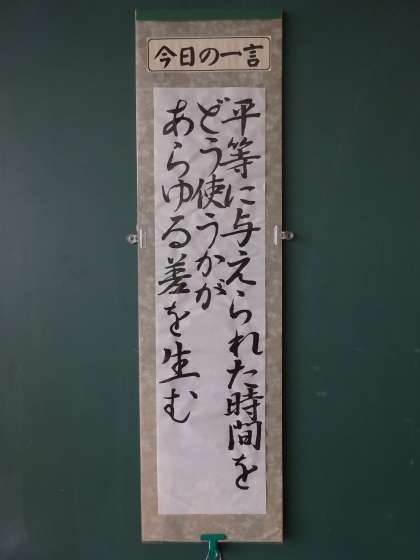 今日の一言
平等に与えられた時間を
どう使うかが
あらゆる差を生む